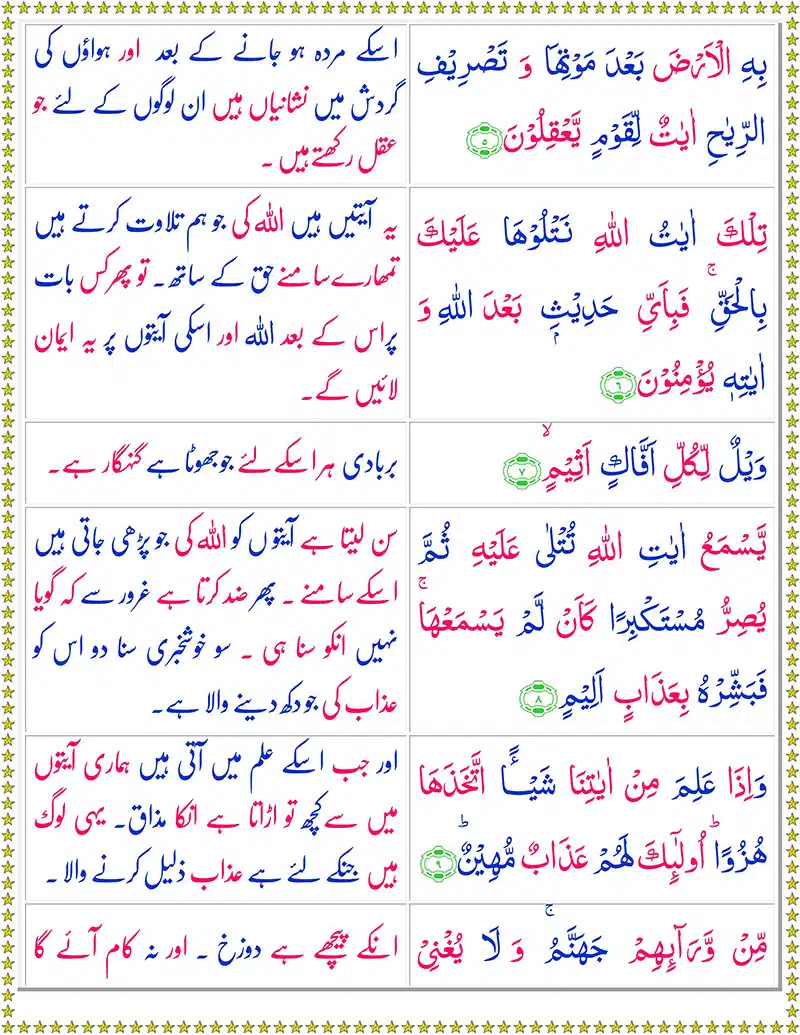 بِهِ الْاَرْضَ بَعْدَ مَوْتِهَا وَ تَصْرِيْفِ
الرِّيٰحِ اٰيٰتٌ لِّقَوْمٍ يَّعْقِلُوْنَ ۝۵
اسکے مردہ ہو جانے کے بعد اور ہواؤں کی
گردش میں نشانیاں ہیں ان لوگوں کے لئے جو
عقل رکھتے ہیں ۔
تِلْكَ اٰيٰتُ اللّٰهِ نَتْلُوْهَا عَلَيْكَ
بِالْحَقِّ ۚ فَبِاَيِّ حَدِيْثٍۭ بَعْدَ اللّٰهِ وَ
اٰيٰتِهٖ يُؤْمِنُوْنَ ۝۶
یہ آیتیں ہیں اللہ کی جو ہم تلاوت کرتے ہیں
تمھارے سامنے حق کے ساتھ۔ تو پھر کس بات
پر اس کے بعد اللہ اور اسکی آیتوں پر یہ ایمان
لائیں گے۔
وَيْلٌ لِّكُلِّ اَفَّاكٍ اَثِيْمٍ ۙ۝۷
بربادی ہر اسکے لئے جو جھوٹا ہے گنہگار ہے۔
يَّسْمَعُ اٰيٰتِ اللّٰهِ تُتْلٰى عَلَيْهِ ثُمَّ
يُصِرُّ مُسْتَكْبِرًا كَاَنْ لَّمْ يَسْمَعْهَا ۚ
فَبَشِّرْهُ بِعَذَابٍ اَلِيْمٍ ۝۸
سن لیتا ہے آیتوں کو اللہ کی جو پڑھی جاتی ہیں
اسکے سامنے ۔ پھر ضد کرتا ہے غرور سے کہ گویا
نہیں انکو سنا ہی ۔ سو خوشخبری سنا دو اس کو
عذاب کی جو دکھ دینے والا ہے۔
وَاِذَا عَلِمَ مِنْ اٰيٰتِنَا شَيْـًٔا اتَّخَذَهَا
هُزُوًا ؕ اُولٰٓئِكَ لَهُمْ عَذَابٌ مُّهِيْنٌ ؕ۝۹
اور جب اسکے علم میں آتی ہیں ہماری آیتوں
میں سے کچھ تو اڑاتا ہے انکا مذاق۔ یہی لوگ
ہیں جنکے لئے ہے عذاب ذلیل کرنے والا ۔
مِّنْ وَّرَآئِهِمْ جَهَنَّمُ ۚ وَ لَا يُغْنِيْ
انکے پیچھے ہے دوزخ ۔ اور نہ کام آئے گا